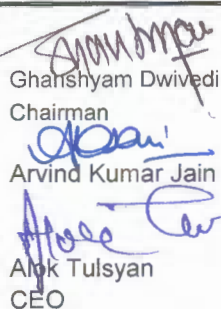 Ghanshyam Dwivedi
Chairman
Arvind Kumar Jain
Alok Tulsyan
CEO